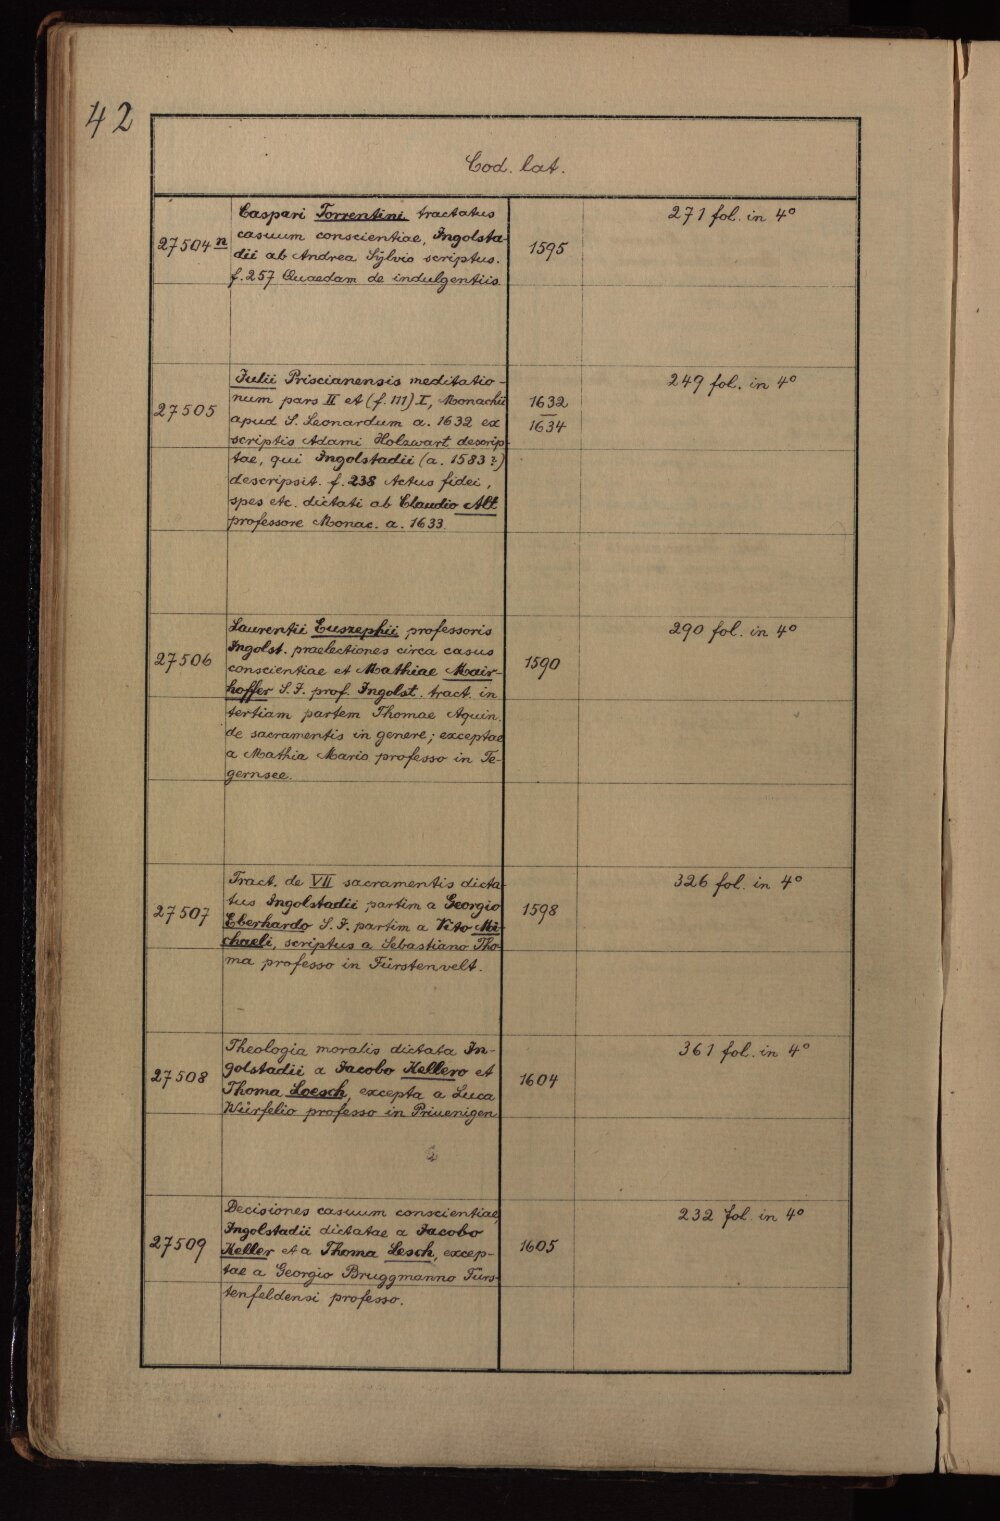 42
Cod. lat.
27504n
Caspari Torrentini tractatus
casuum conscientiae, Ingolsta-
dii ab Andrea Sylvio scriptus.
f. 257 Quaedam de indulgentiis
1595
271 fol. in 4°
27505
Julii Priscianensis meditatio-
num pars II et (f. 111) I, Monachii
apud S. Leonardum a. 1632 ex
scriptis Adami Holzwart descrip-
tae, qui Ingolstadii (a. 1583?)
descripsit. f. 238 Actus fidei,
spes etc. dictati ab Claudio Alt
professore Monac. a. 1633.
1632
1634
249 fol. in 4°
27506
Laurentii Euszephii professoris
Ingolst. praelectiones circa casus
conscientiae et Mathiae Mair-
hoffer S. J. prof. Ingolst. tract. in
tertiam partem Thomae Aquin.
de sacramentis in genere; exceptae
a Mathia Mario professo in Te-
gernsee.
1590
290 fol. in 4°
27507
Tract. de VII sacramentis dicta-
tus Ingolstadii partim a Georgio
Eberhardo S. J. partim a Vito Mi-
chaeli, scriptus a Sebastiano Tho-
ma professo in Fürstenvelt.
1598
326 fol. in 4°
27508
Theologia moralis dictata In-
golstadii a Jacobo Kellero et
Thoma Loesch, excepta a Luca
Würfelio professo in Priuenigen
1604
361 fol. in 4°
27509
Decisiones casuum conscientiae,
Ingolstadii dictatae a Jacobo
Keller et a Thoma Lesch, excep-
tae a Georgio Bruggmanno Furs-
tenfeldensi professo.
1605
232 fol. in 4°